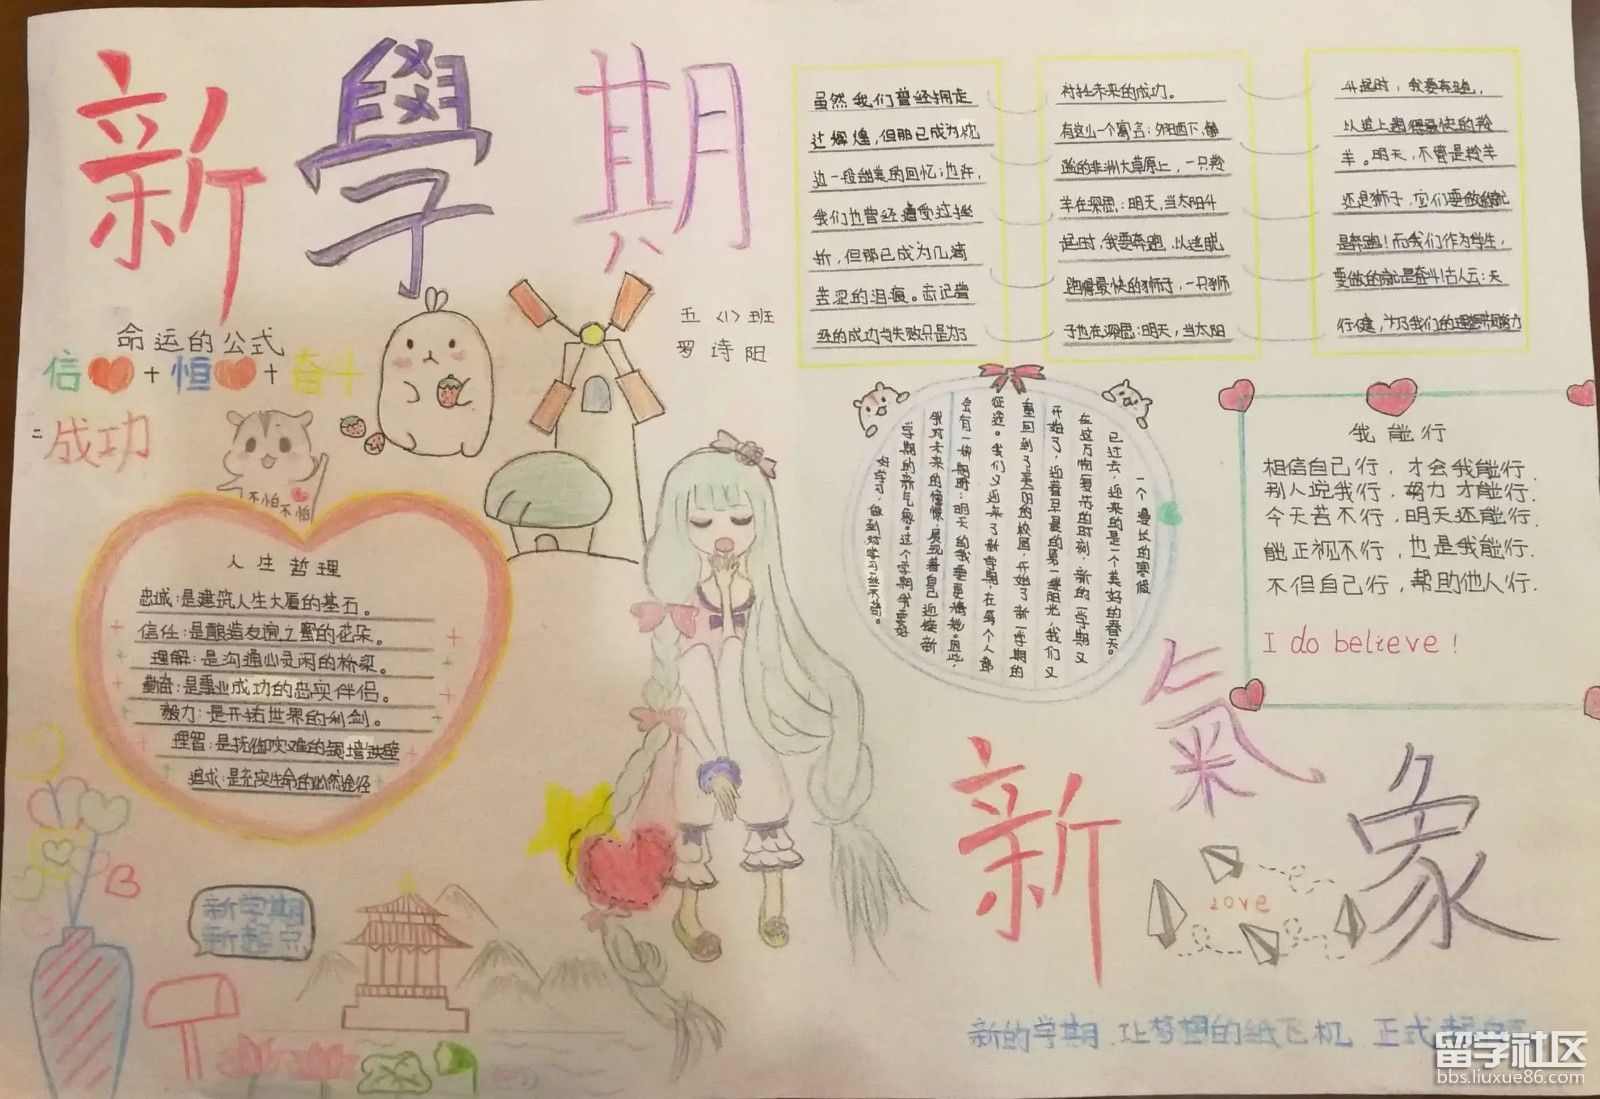 新學期
五〈1〉班
罗诗阳
命运的公式
信❤+恒❤+奋斗
=成功
不怕不怕
人生哲理
忠诚:是建筑人生大厦的基石。
信任:是酿造友谊之蜜的花朵。
理解:是沟通心灵闲的桥梁。
勤奋:是事业成功的忠实伴侣。
毅力:是开拓世界的利剑。
理智:是抚御灾难的铜墙铁壁
追求:是充实生命的必然途径
新学期
新起点
虽然我们曾经拥走
过辉煌,但那已成为枕
边一段甜美的回忆;也许,
我们也曾经遭受过挫
折,但那已成为几滴
苦涩的泪痕。忘记曾
经的成功与失败只是为了
衬托未来的成功。
有这么一个寓言:夕阳西下,
的非洲大草原上,一只羚
羊在深思:明天,当太阳升
起时,我要奔跑,以逃脱
跑得最快的狮子,一只狮
子也在深思:明天,当太阳
升起时,我要奔跑,
以追上跑得最快的羚
羊。明天,不管是羚羊
还是狮子,它们要做的就
是奔跑!而我们作为学生,
要做的就是奋斗!古人云:天
行健,为了我们的理想而努力
一个漫长的寒假
已过去,迎来的是一个美好的春天。
在这万物复苏的时刻,新的一学期又
开始了,迎着早晨的第一缕阳光,我们又
重回到了美丽的校园,开始了新一学期的
征途。我们又迎来了新学期,在每个人都
会有一种期盼:明天的我要更精彩。因此,
我对未来的憧憬,展现着自己,迎接新
学期的新气象。这个学期我要好
好学习,做到对学习
我能行
相信自己行,才会我能行.
别人说我行,努力才能行.
今天若不行,明天还能行.
能正视不行,也是我能行.
不但自己行,帮助他人行.
I do believe!
新氣象
Love
新的学期 让梦想的纸飞机 正式起
留学社区
bbs.liuxue86.com